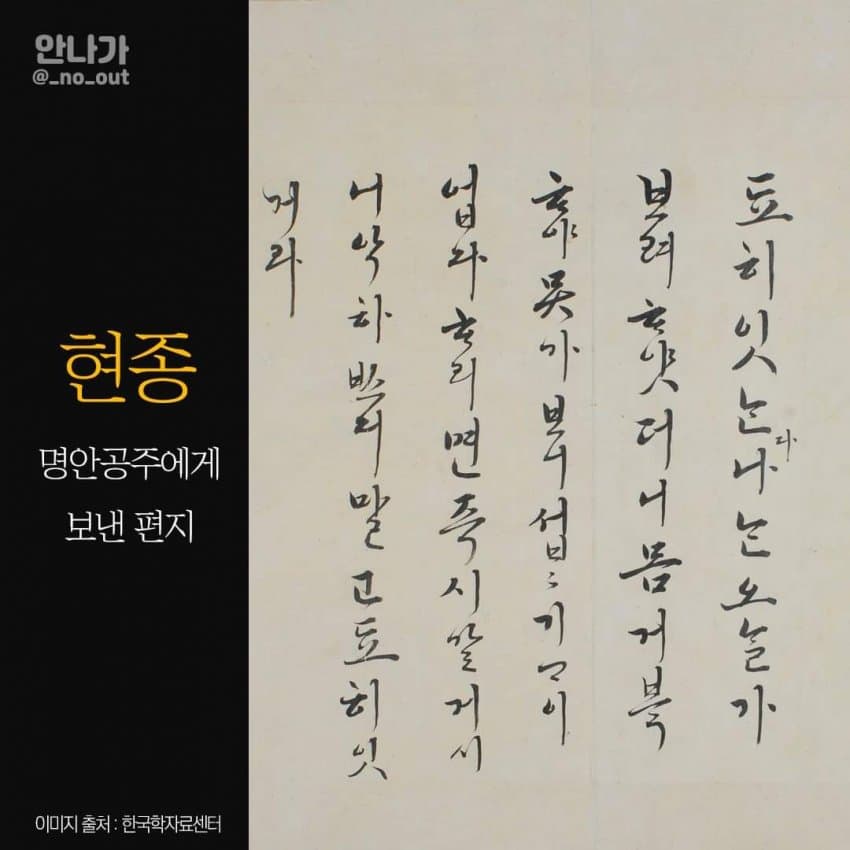 안나가
@_no_out
현종
명안공주에게
보낸 편지
됴히잇ᄂᆞᆫ다나ᄂᆞᆫ오ᄂᆞᆯ가
보려ᄒᆞ얏더니몸거북
ᄒᆞ야못가보니섭〻기ᄀᆞ이
업다ᄒᆞ리면즉시갈거시
니악하 말고됴히잇
거라
이미지 출처 : 한국학자료센터